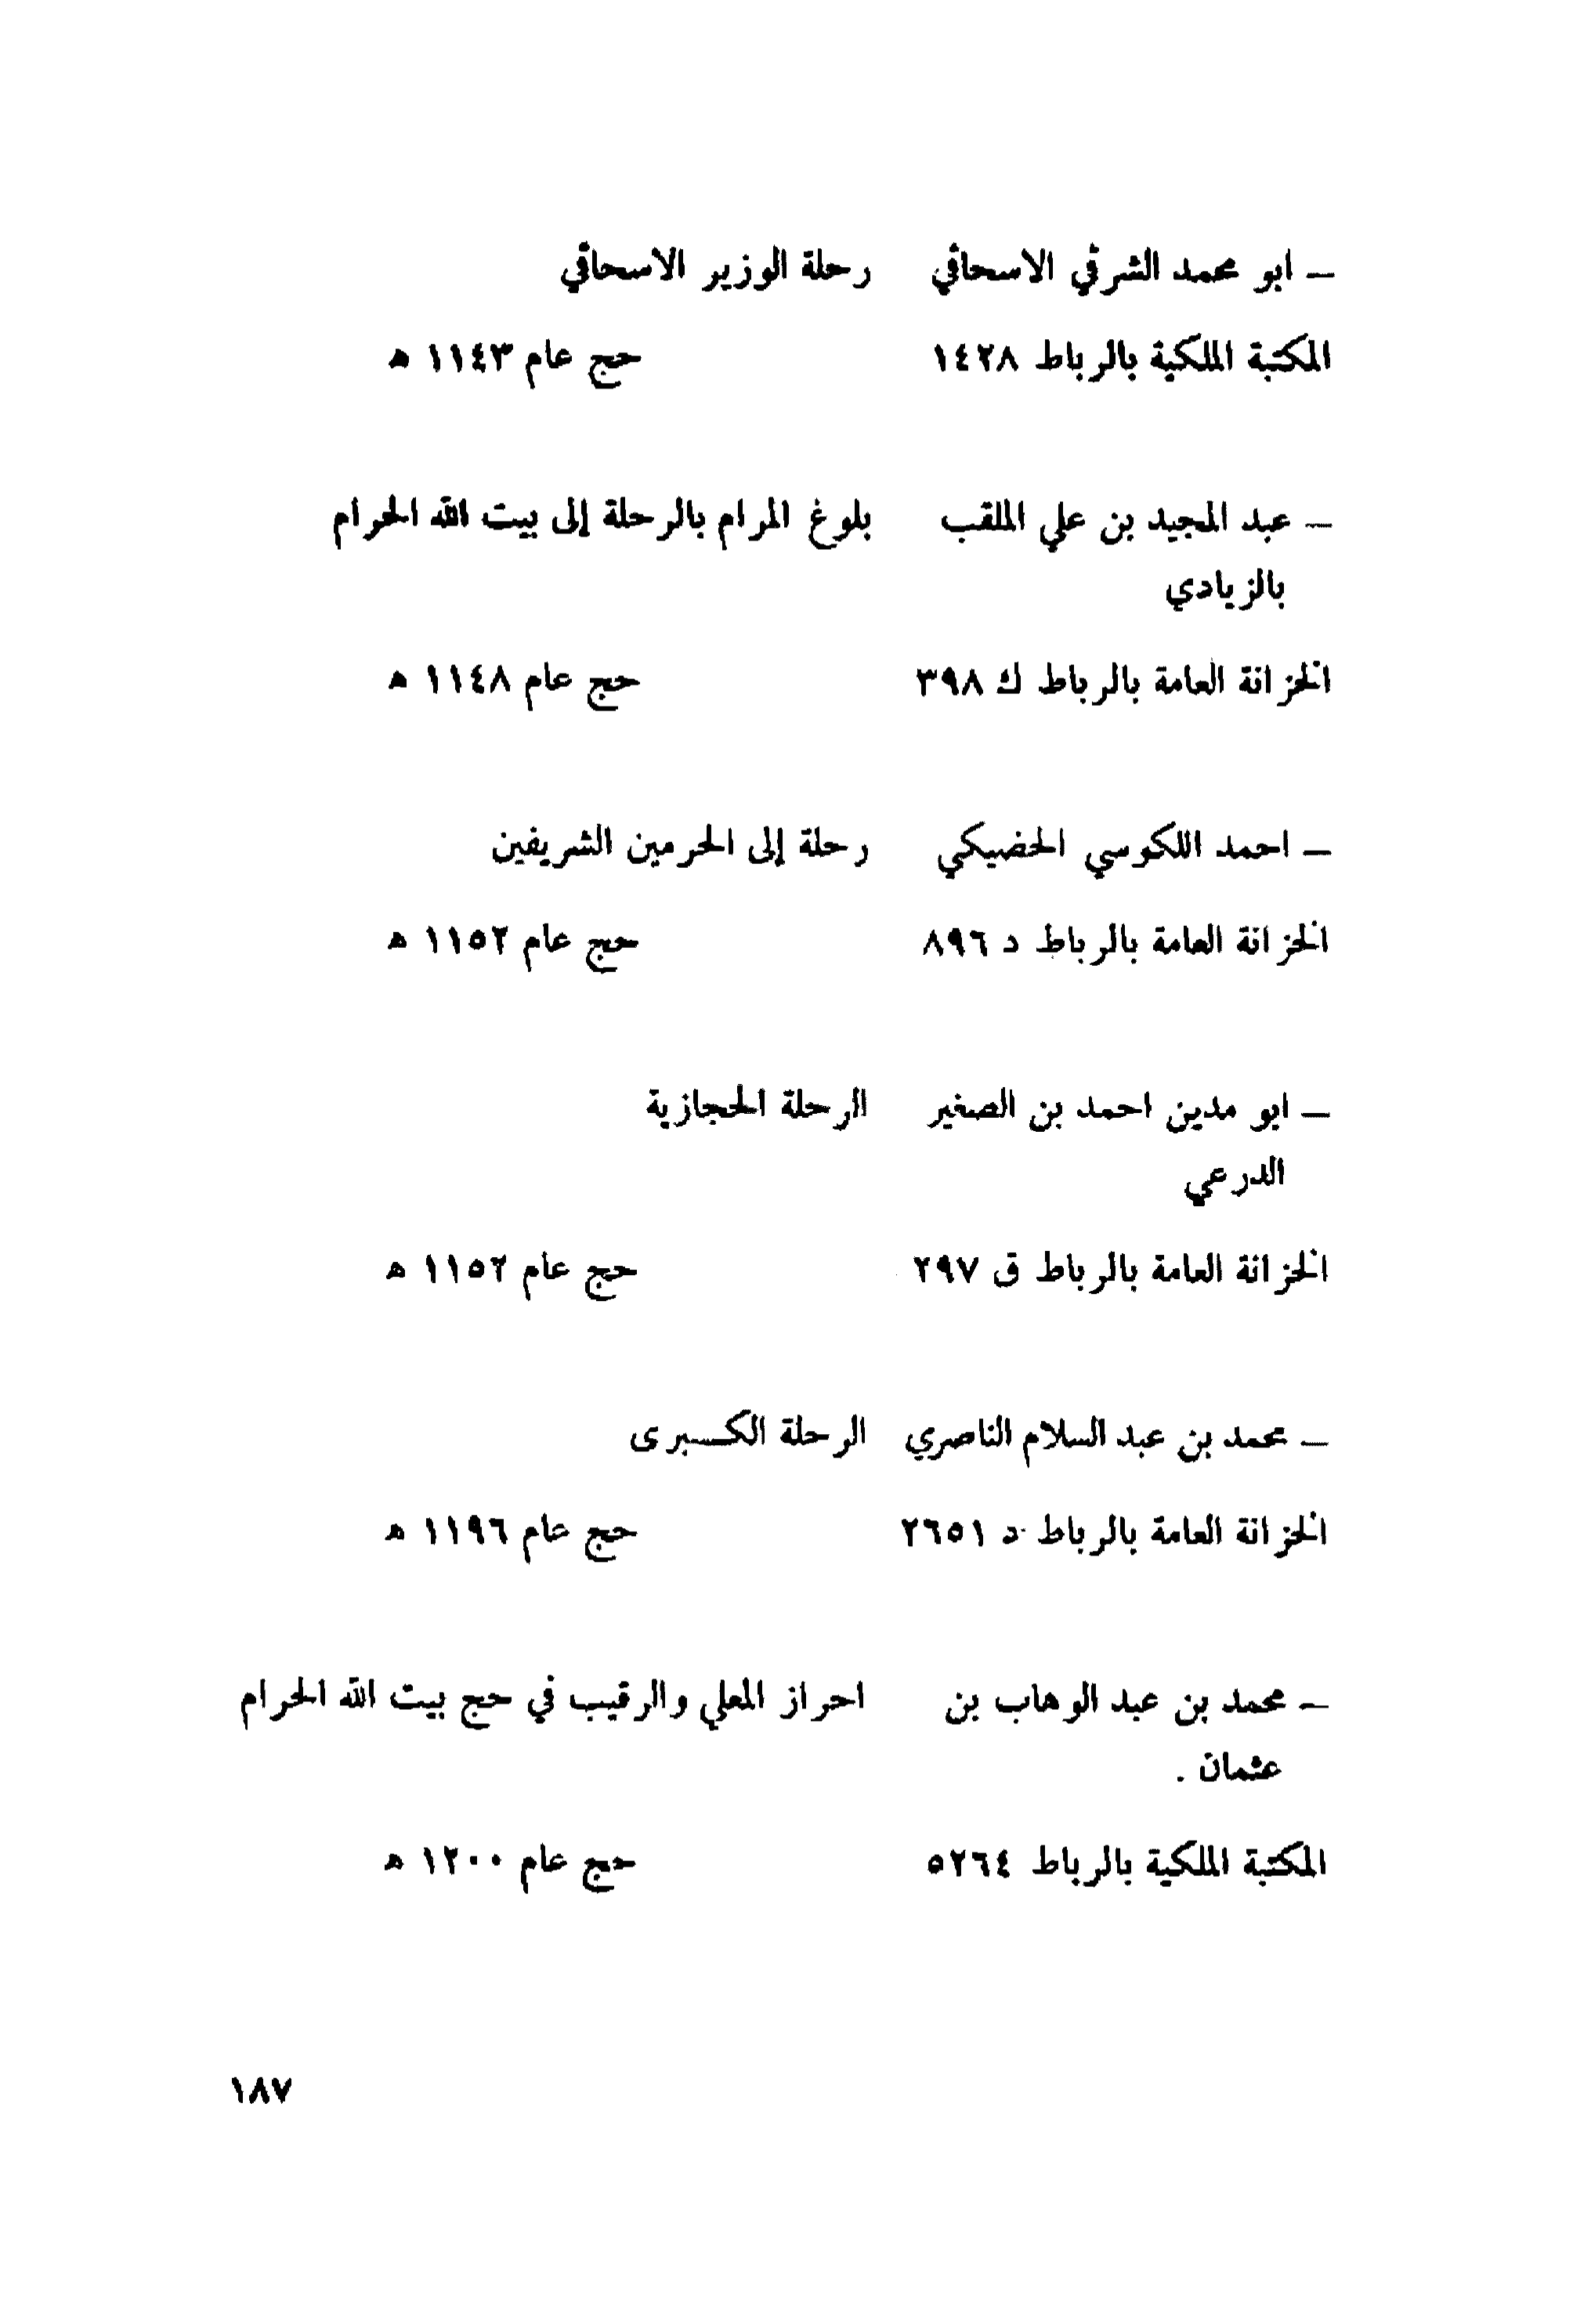 – ابو محمد الشرقي الاسحاقي رحلة الوزير الاسحاقي
المكتبة الملكية بالرباط ١٤٢٨ حج عام ١١٤٣ ه
– عبد المجيد بن علي الملقب بلوغ المرام بالرحلة إلى بيت الله الحرام
بالزيادي
الخزانة العامة بالرباط ك ٣٩٨ حج عام ١١٤٨ ه
– احمد اللكوسي الحضيكي رحلة إلى الحرمين الشريفين
الخزانة العامة بالرباط د ٨٩٦ حج عام ١١٥٢ ه
– ابو مدين احمد بن الصغير الرحلة الحجازية
الدرعي
الخزانة العامة بالرباط ق ٢٩٧ حج عام ١١٥٢ ه
– محمد بن عبد السلام الناصري الرحلة الكبرى
الخزانة العامة بالرباط د ٢٦٥١ حج عام ١١٩٦ ه
– محمد بن عبد الوهاب بن احراز المعلي والرقيب في حج بيت الله الحرام
عثمان .
المكتبة الملكية بالرباط ٥٢٦٤ حج عام ١٢٠٠ ه
١٨٧